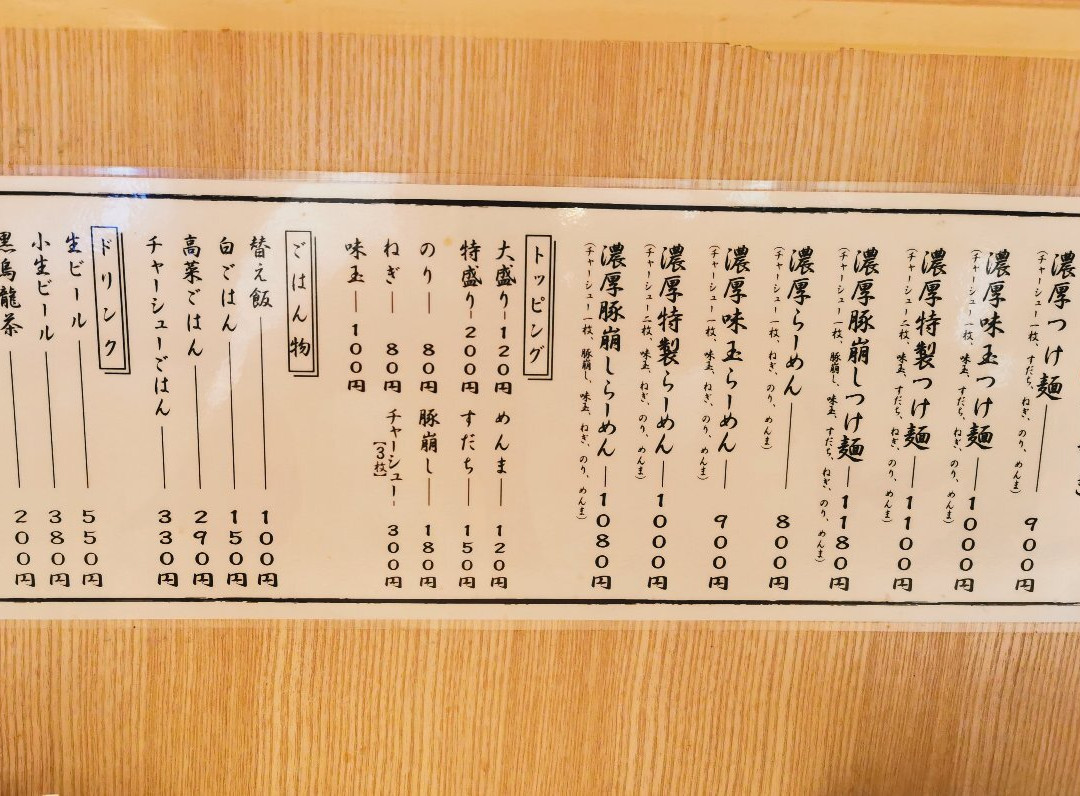 濃厚つけ麺 900円
(チャーシュー一枚、すだち、ねぎ、のり、めんま)
濃厚味玉つけ麺 1000円
(チャーシュー一枚、味玉、すだち、ねぎ、のり、めんま)
濃厚特製つけ麺 1100円
(チャーシュー二枚、味玉、すだち、ねぎ、のり、めんま)
濃厚豚崩しつけ麺 1180円
(チャーシュー一枚、豚崩し、味玉、すだち、ねぎ、のり、めんま)
濃厚らーめん 800円
(チャーシュー一枚、ねぎ、のり、めんま)
濃厚味玉らーめん 900円
(チャーシュー一枚、味玉、ねぎ、のり、めんま)
濃厚特製らーめん 1000円
(チャーシュー二枚、味玉、ねぎ、のり、めんま)
濃厚豚崩しらーめん 1080円
(チャーシュー一枚、豚崩し、味玉、ねぎ、のり、めんま)
トッピング
大盛り 120円 めんま 120円
特盛り 200円 すだち 150円
のり 80円 豚崩し 180円
ねぎ 80円 チャーシュー 300円
【3枚】
味玉 100円
ごはん物
替え飯 100円
白ごはん 150円
高菜ごはん 290円
チャーシューごはん 330円
ドリンク
生ビール 550円
小生ビール 380円
黒烏龍茶 200円